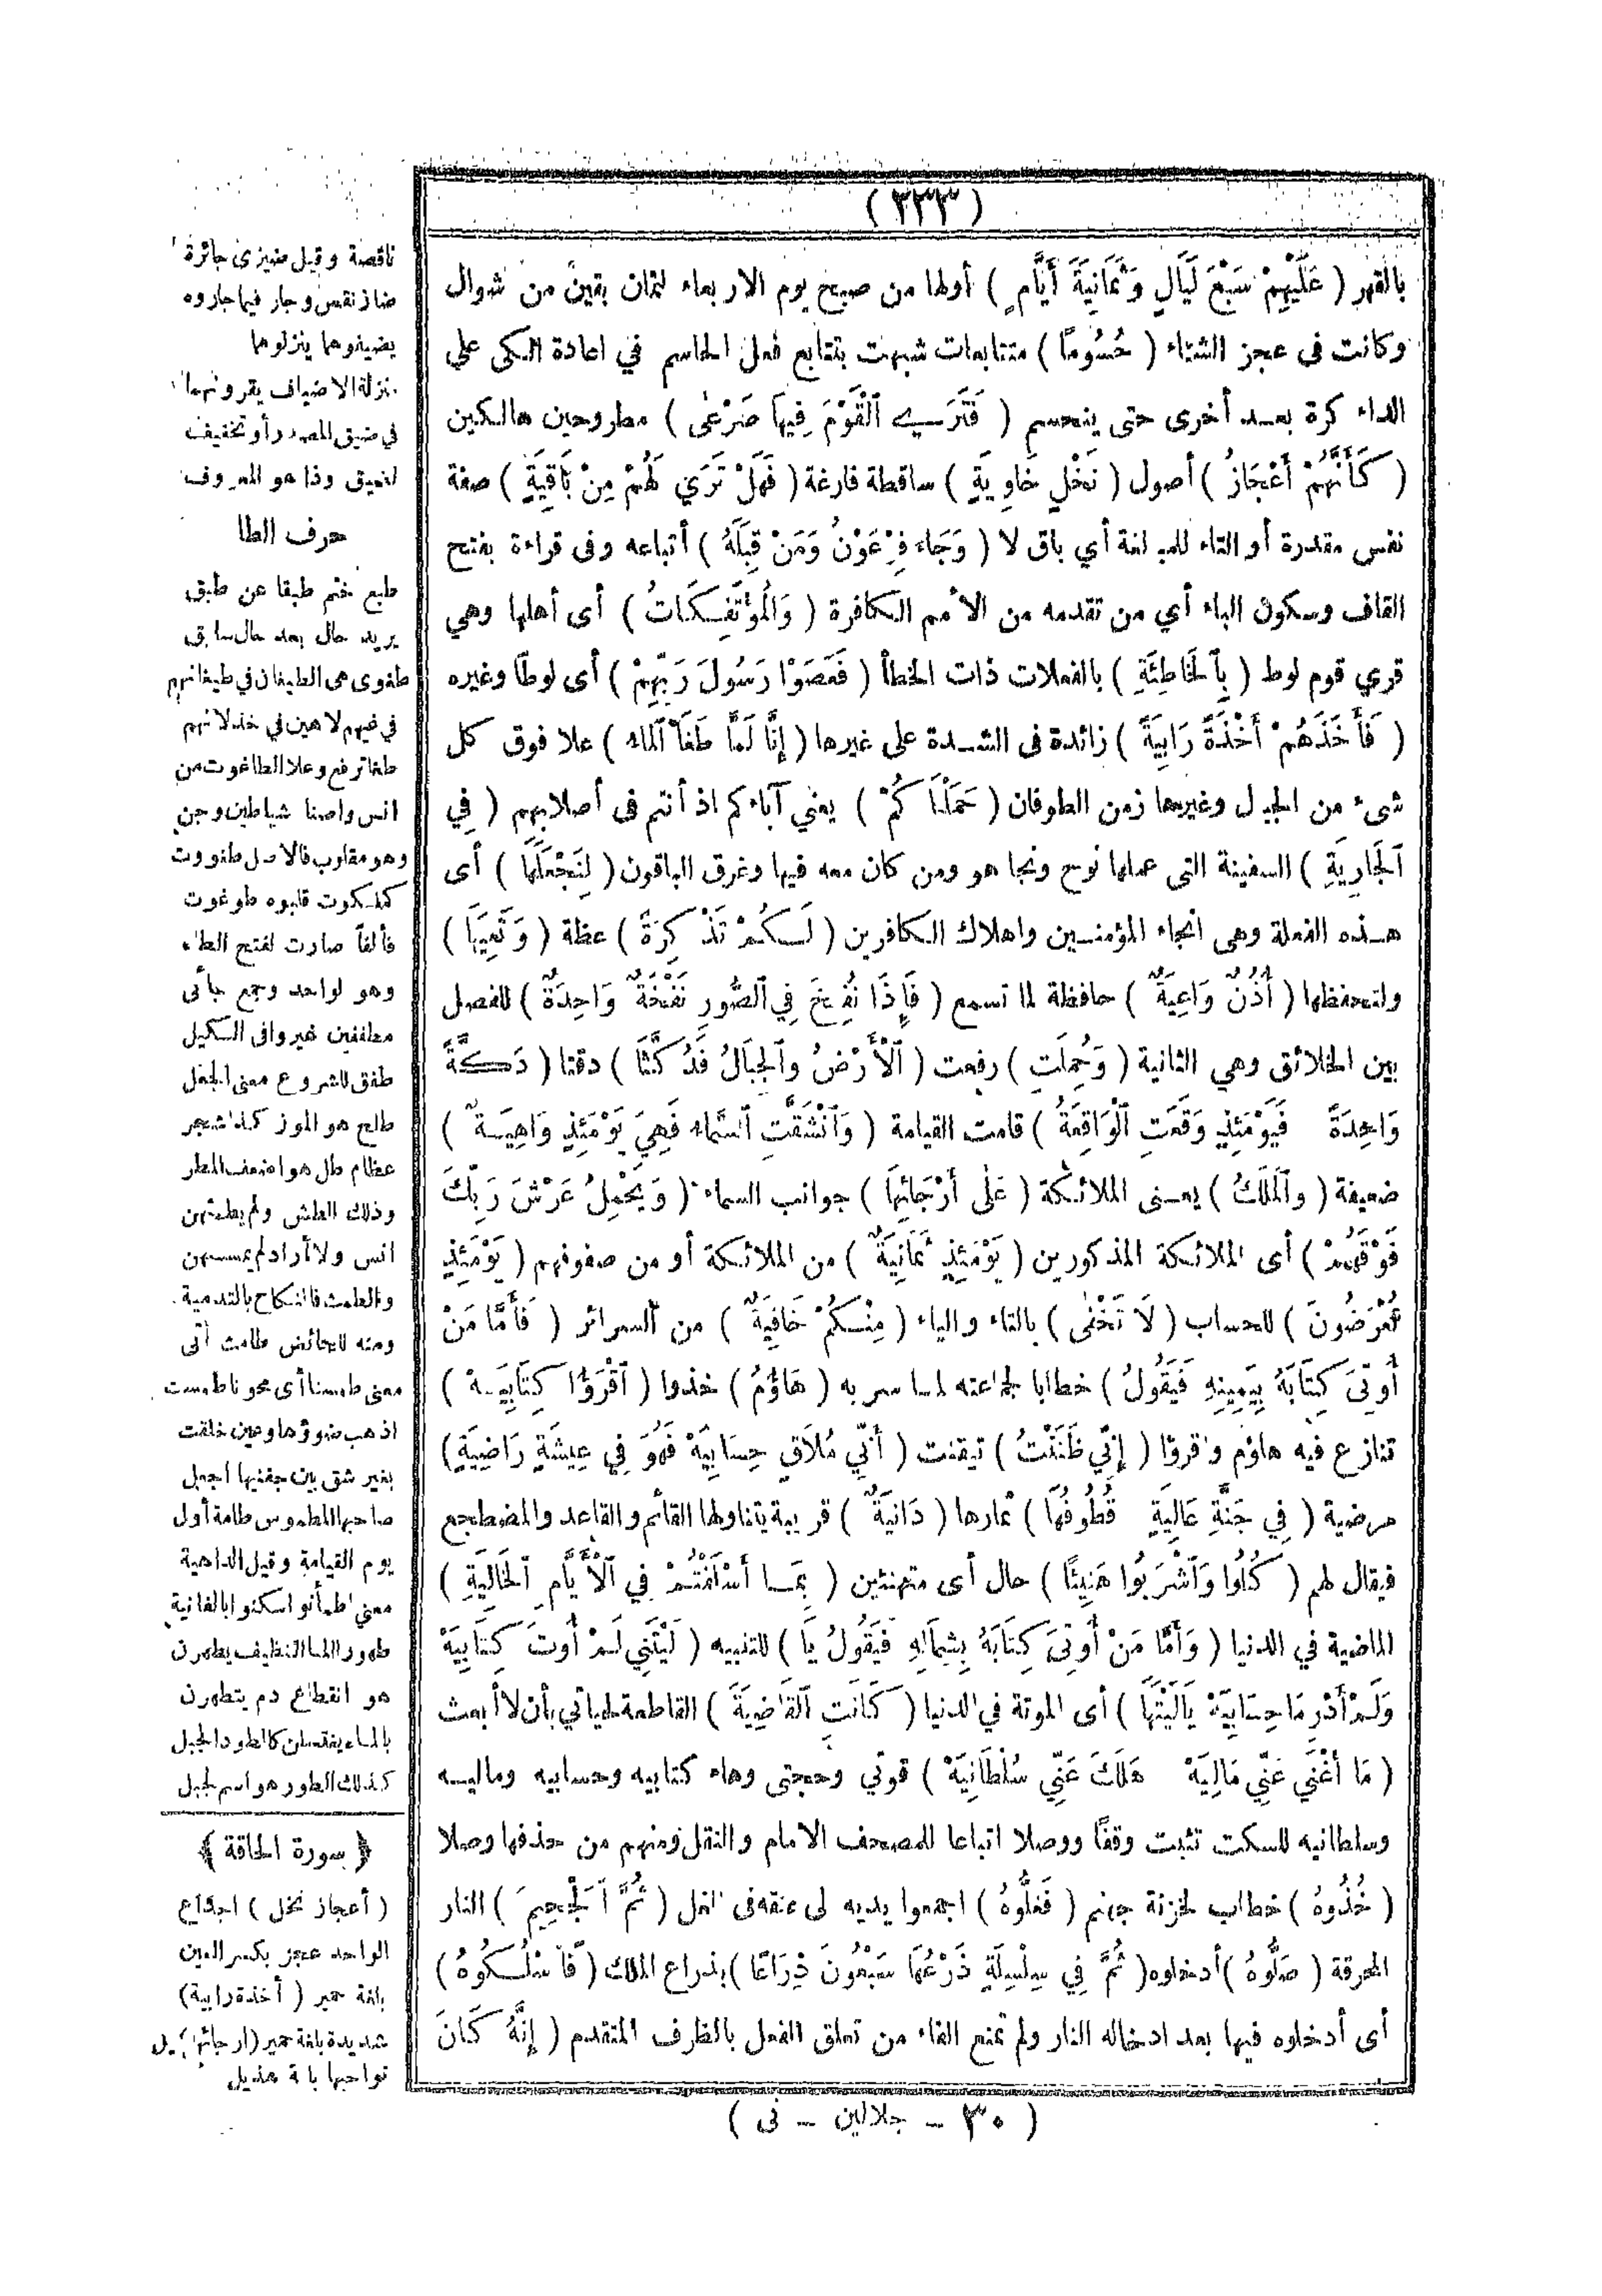 (٢٣٣)
بالقهر ( عَلَيْهِمْ سَبْعَ لَيَالٍ وَثَمَانِيَةَ أَيَّامٍ ) أولها من صبح يوم الاربعاء لثمان بقين من شوال
وكانت في عجز الشتاء ( حُسُومًا ) متتابعات شبهت بتتابع فعل الحاسم في اعادة الكى على
الداء كرة بعد أخرى حتى ينحسم ( فَتَرَى ٱلْقَوْمَ فِيهَا صَرْعَى ) مطروحين هالكين
( كَأَنَّهُمْ أَعْجَازُ ) أصول ( نَخْلٍ خَاوِيَةٍ ) ساقطة فارغة ( فَهَلْ تَرَى لَهُمْ مِنْ بَاقِيَةٍ ) صفة
نفس مقدرة أو التاء للمبالغة أي باق لا ( وَجَاءَ فِرْعَوْنُ وَمَنْ قِبَلَهُ ) أتباعه وفى قراءة بفتح
القاف وسكون الباء أي من تقدمه من الأمم الكافرة ( وَالْمُؤْتَفِكَاتُ ) أى أهلها وهي
قري قوم لوط ( بِٱلْخَاطِئَةِ ) بالفعلات ذات الخطأ ( فَعَصَوْا رَسُولَ رَبِّهِمْ ) أى لوطا وغيره
( فَأَخَذَهُمْ أَخْذَةً رَابِيَةً ) زائدة فى الشدة على غيرها ( إِنَّا لَمَّا طَغَا ٱلْمَاءُ ) علا فوق كل
شىء من الجبال وغيرها زمن الطوفان ( حَمَلْنَاكُمْ ) يعني آباءكم اذ أنتم فى أصلابهم ( فِي
ٱلْجَارِيَةِ ) السفينة التى عملها نوح ونجا هو ومن كان معه فيها وغرق الباقون ( لِنَجْعَلَهَا ) أى
هذه الفعلة وهى انجاء المؤمنين واهلاك الكافرين ( لَكُمْ تَذْكِرَةً ) عظة ( وَتَعِيَهَا )
ولتحفظها ( أُذُنٌ وَاعِيَةٌ ) حافظة لما تسمع ( فَإِذَا نُفِخَ فِي ٱلصُّورِ نَفْخَةٌ وَاحِدَةٌ ) للفصل
بين الخلائق وهي الثانية ( وَحُمِلَتِ ) رفعت ( ٱلْأَرْضُ وَٱلْجِبَالُ فَدُكَّتَا ) دقتا ( دَكَّةً
وَاحِدَةً فَيَوْمَئِذٍ وَقَعَتِ ٱلْوَاقِعَةُ ) قامت القيامة ( وَٱنْشَقَّتِ ٱلسَّمَاءُ فَهِيَ يَوْمَئِذٍ وَاهِيَةٌ )
ضعيفة ( وَٱلْمَلَكُ ) يعنى الملائكة ( عَلَى أَرْجَائِهَا ) جوانب السماء ( وَيَحْمِلُ عَرْشَ رَبِّكَ
فَوْقَهُمْ ) أى الملائكة المذكورين ( يَوْمَئِذٍ ثَمَانِيَةٌ ) من الملائكة أو من صفوفهم ( يَوْمَئِذٍ
تُعْرَضُونَ ) للحساب ( لَا تَخْفَى ) بالتاء والياء ( مِنْكُمْ خَافِيَةٌ ) من السرائر ( فَأَمَّا مَنْ
أُوتِيَ كِتَابَهُ بِيَمِينِهِ فَيَقُولُ ) خطابا لجماعته لما سر به ( هَاؤُمُ ) خذوا ( ٱقْرَؤُا كِتَابِيَهْ )
تنازع فيه هاؤم واقرؤا ( إِنِّي ظَنَنْتُ ) تيقنت ( أَنِّي مُلَاقٍ حِسَابِيَهْ فَهُوَ فِي عِيشَةٍ رَاضِيَةٍ )
مرضية ( فِي جَنَّةٍ عَالِيَةٍ قُطُوفُهَا ) ثمارها ( دَانِيَةٌ ) قريبة يتناولها القائم والقاعد والمضطجع
فيقال لهم ( كُلُوا وَٱشْرَبُوا هَنِيئًا ) حال أى متهنئين ( بِمَا أَسْلَفْتُمْ فِي ٱلْأَيَّامِ ٱلْخَالِيَةِ )
الماضية في الدنيا ( وَأَمَّا مَنْ أُوتِيَ كِتَابَهُ بِشِمَالِهِ فَيَقُولُ يَا ) للتنبيه ( لَيْتَنِي لَمْ أُوتَ كِتَابِيَهْ
وَلَمْ أَدْرِ مَا حِسَابِيَهْ يَالَيْتَهَا ) أى الموتة في الدنيا ( كَانَتِ ٱلْقَاضِيَةَ ) القاطعة لحياتي بأن لا أبعث
( مَا أَغْنَى عَنِّي مَالِيَهْ هَلَكَ عَنِّي سُلْطَانِيَهْ ) قوتي وحجتى وهاء كتابيه وحسابيه وماليه
وسلطانيه للسكت تثبت وقفا ووصلا اتباعا للمصحف الامام والنقل ومنهم من حذفها وصلا
( خُذُوهُ ) خطاب لخزنة جهنم ( فَغُلُّوهُ ) اجمعوا يديه الى عنقه فى الغل ( ثُمَّ ٱلْجَحِيمَ ) النار
المحرقة ( صَلُّوهُ ) أدخلوه ( ثُمَّ فِي سِلْسِلَةٍ ذَرْعُهَا سَبْعُونَ ذِرَاعًا ) بذراع الملك ( فَٱسْلُكُوهُ )
أى أدخلوه فيها بعد ادخاله النار ولم تمنع الفاء من تعلق الفعل بالظرف المتقدم ( إِنَّهُ كَانَ
ناقصة وقيل ضيزى جائرة
ضاز نقص وجار فيما جاروه
يضيفوهما ينزلوهما
منزلة الاضياف يقرونهما
في ضيق المصدر أو تخفيف
لضيق وذا هو المعروف
حرف الطا
طبع ختم طبقا عن طبق
يريد حال بعد حال سابق
طغوى هى الطيفان في طغيانهم
في غيهم لاهين في خذلانهم
طغا ترفع وعلا الطاغوت من
انس واصنا شياطين وجن
وهو مقلوب فالاصل طغووت
كملكوت قلبوه طوغوت
فألفا صارت لفتح الطاء
وهو لواحد وجمع جائى
مطففين غير وافى الكيل
طفق للشروع معنى الجعل
طلح هو الموز كذا شجر
عظام طل هو اضعف المطر
وذلك الطش ولم يطمثهن
انس ولا أراد لم يمسسهن
والطمث فالنكاح بالتدمية
ومنه للحائض طامث أتى
معنى طمسنا أى محونا طمست
اذهب ضوؤها وعين خلقت
بغير شق بين جفنيها اجعل
صاحبها المطموس طامة أول
يوم القيامة وقيل الداهية
معنى اطمأنوا سكنوا بالفانية
طهور الماالنظيف يطهرن
هو انقطاع دم يتطهرن
بالماء يغتسلن كالطود الجبل
كذلك الطور هو اسم لجبل
﴿ سورة الحاقة ﴾
( أعجاز نخل ) اجذاع
الواحد عجز بكسر العين
بلغة حمير ( أخذة رابية )
شديدة بلغة حمير (ارجائها)
نواحيها بلغة هذيل
( ٣٠ - جلالين - نى )